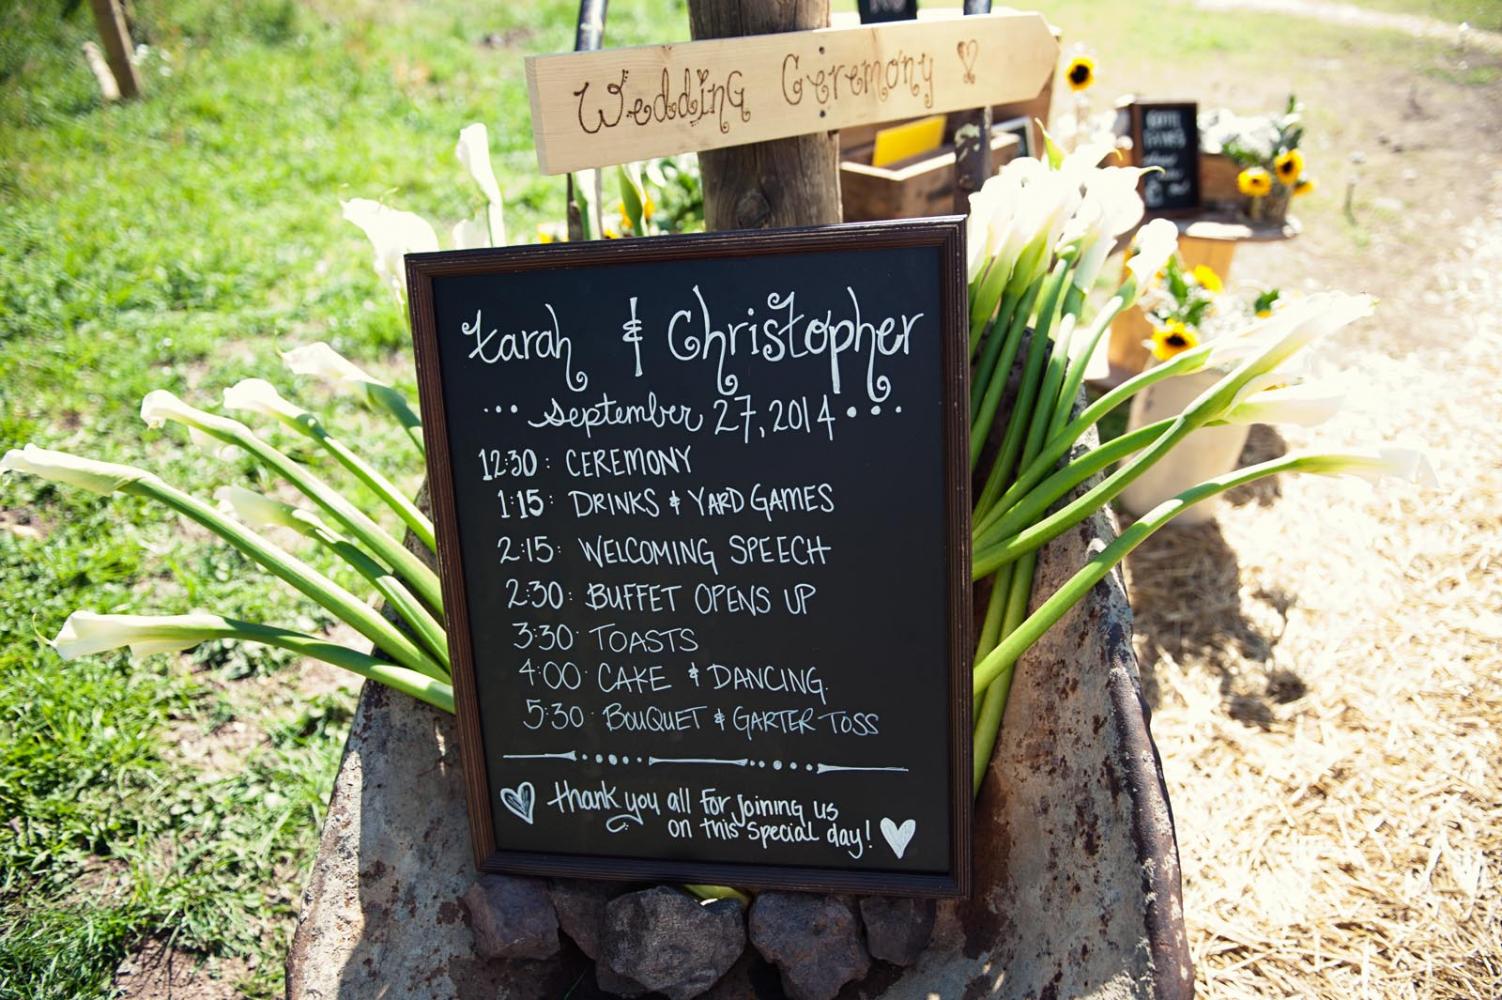 Wedding Ceremony
Tarah & Christopher
... September 27, 2014 ...
12:30: CEREMONY
1:15: DRINKS & YARD GAMES
2:15: WELCOMING SPEECH
2:30: BUFFET OPENS UP
3:30: TOASTS
4:00: CAKE & DANCING.
5:30: BOUQUET & GARTER TOSS
thank you all for joining us
on this special day!